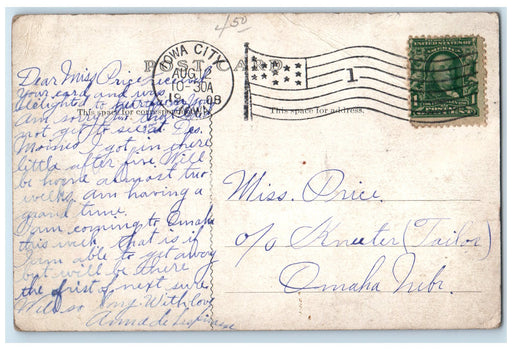 4.50
POST CARD
IOWA CITY
AUG
10-30A
1908
IOWA
1
UNITED STATES OF
1
CENTS
1
This space for correspondence
This space for address.
Dear Miss Price received
your card and was
delighted to hear from you
am sorry
not get to see Des
Moines I got in there
little after five Will
be home almost two
weeks. Am having a
grand time.
I am coming to Omaha
this week that is if
I am able to get away
but will be there
the first of next sure
Will so long. With love
Anna
Miss. Price.
c/o Kneeter (Tailor)
Omaha Nebr.